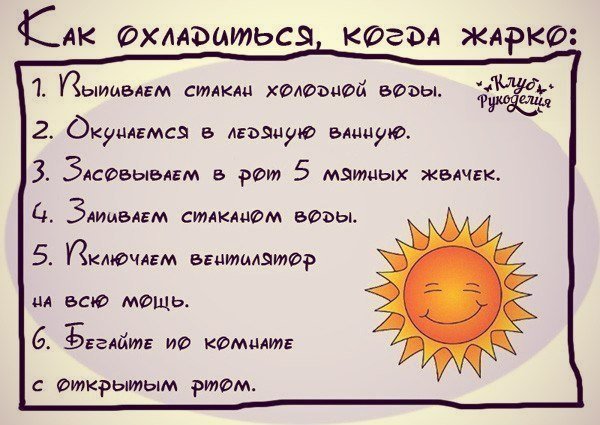 Как охладиться, когда жарко:
1. Выпиваем стакан холодной воды.
Клуб
Рукоделия
2. Окунаемся в ледяную ванную.
3. Засовываем в рот 5 мятных жвачек.
4. Запиваем стаканом воды.
5. Включаем вентилятор
на всю мощь.
6. Бегайте по комнате
с открытым ртом.